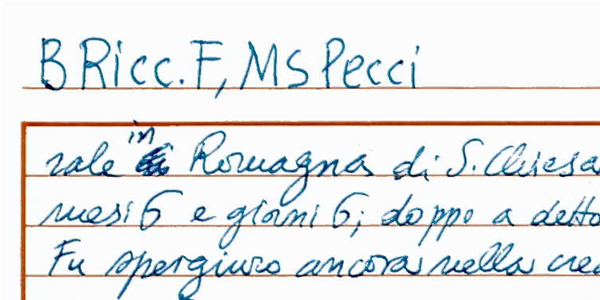 B Ricc. F, Ms Pecci
rale in Romagna di S. Chiesa
mesi 6 e giorni 6; doppo a detto
Fu spergiuro ancora nella crea